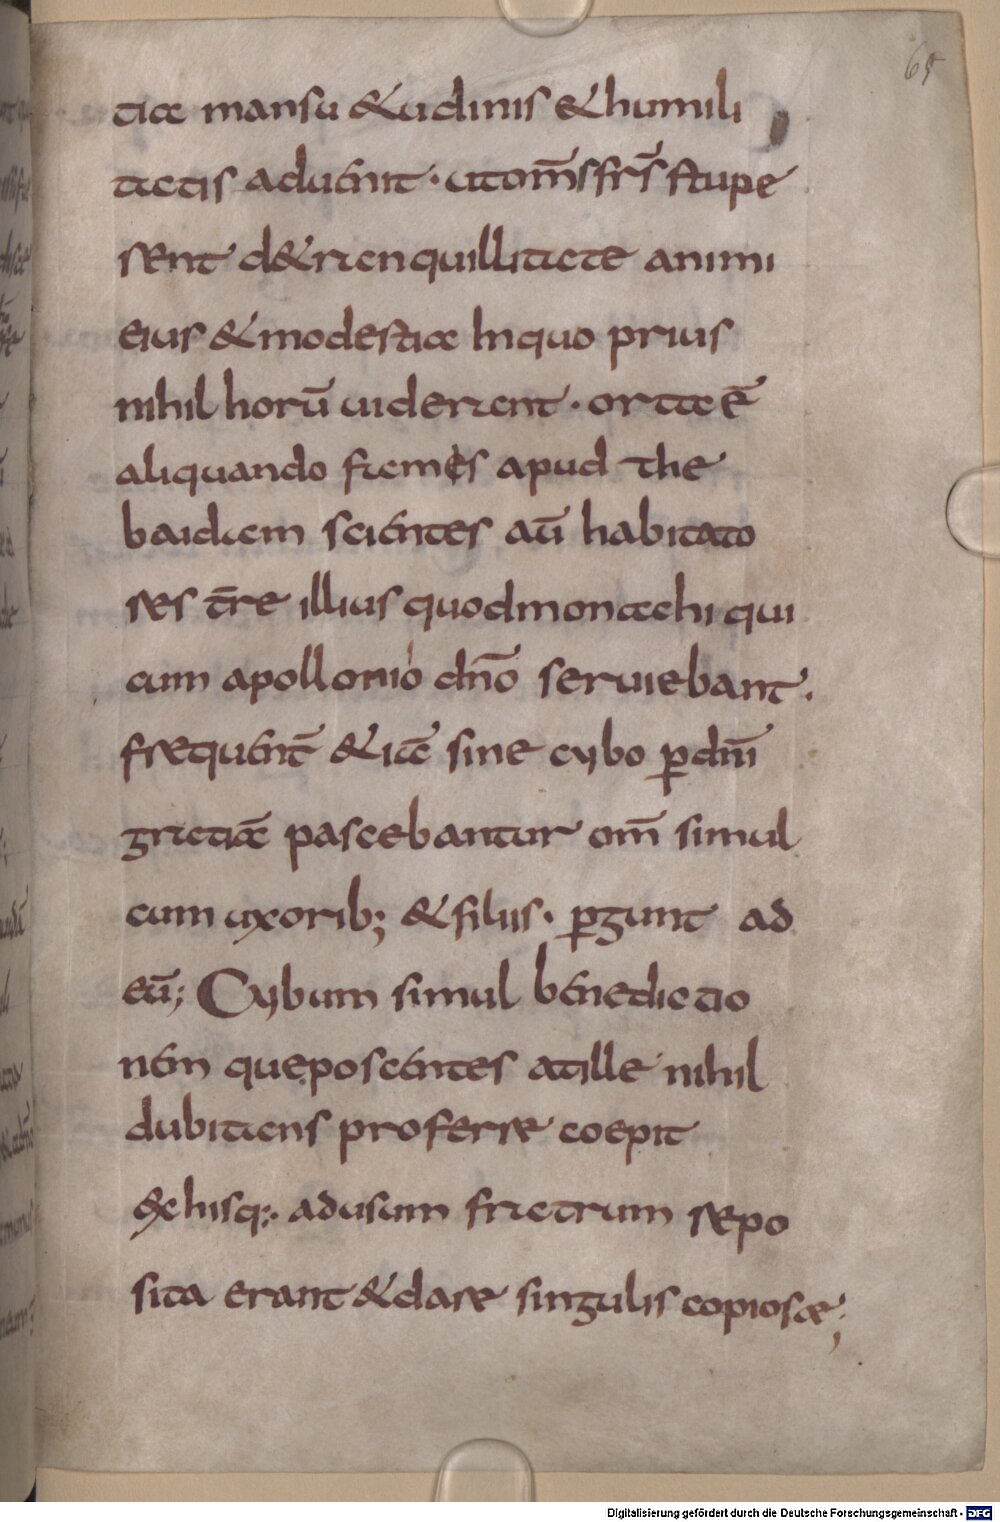 65
tiae mansu&udinis &humili
tatis aduenit · utom̄sfr̄s stupe
rent d&ranquillitate animi
eius &modestiae Inquo prius
nihil horū uiderant · orta ē
aliquando fames apud the
baidam scientes aū habitato
res t̄re illius quodmonachi qui
cum apollonio dn̄o seruiebant ·
frequent̄ &iā sine cybo pdn̄i
gratiā pascebantur om̄ simul
cum uxorib; &filiis · pgunt ad
eū; Cybum simul benedictio
nem queposcentes atille nihil
dubitans proferre coepit
exhisq; · adusum fratrum repo
sita erant &dare singulis copiosae;
Digitalisierung gefördert durch die Deutsche Forschungsgemeinschaft - DFG